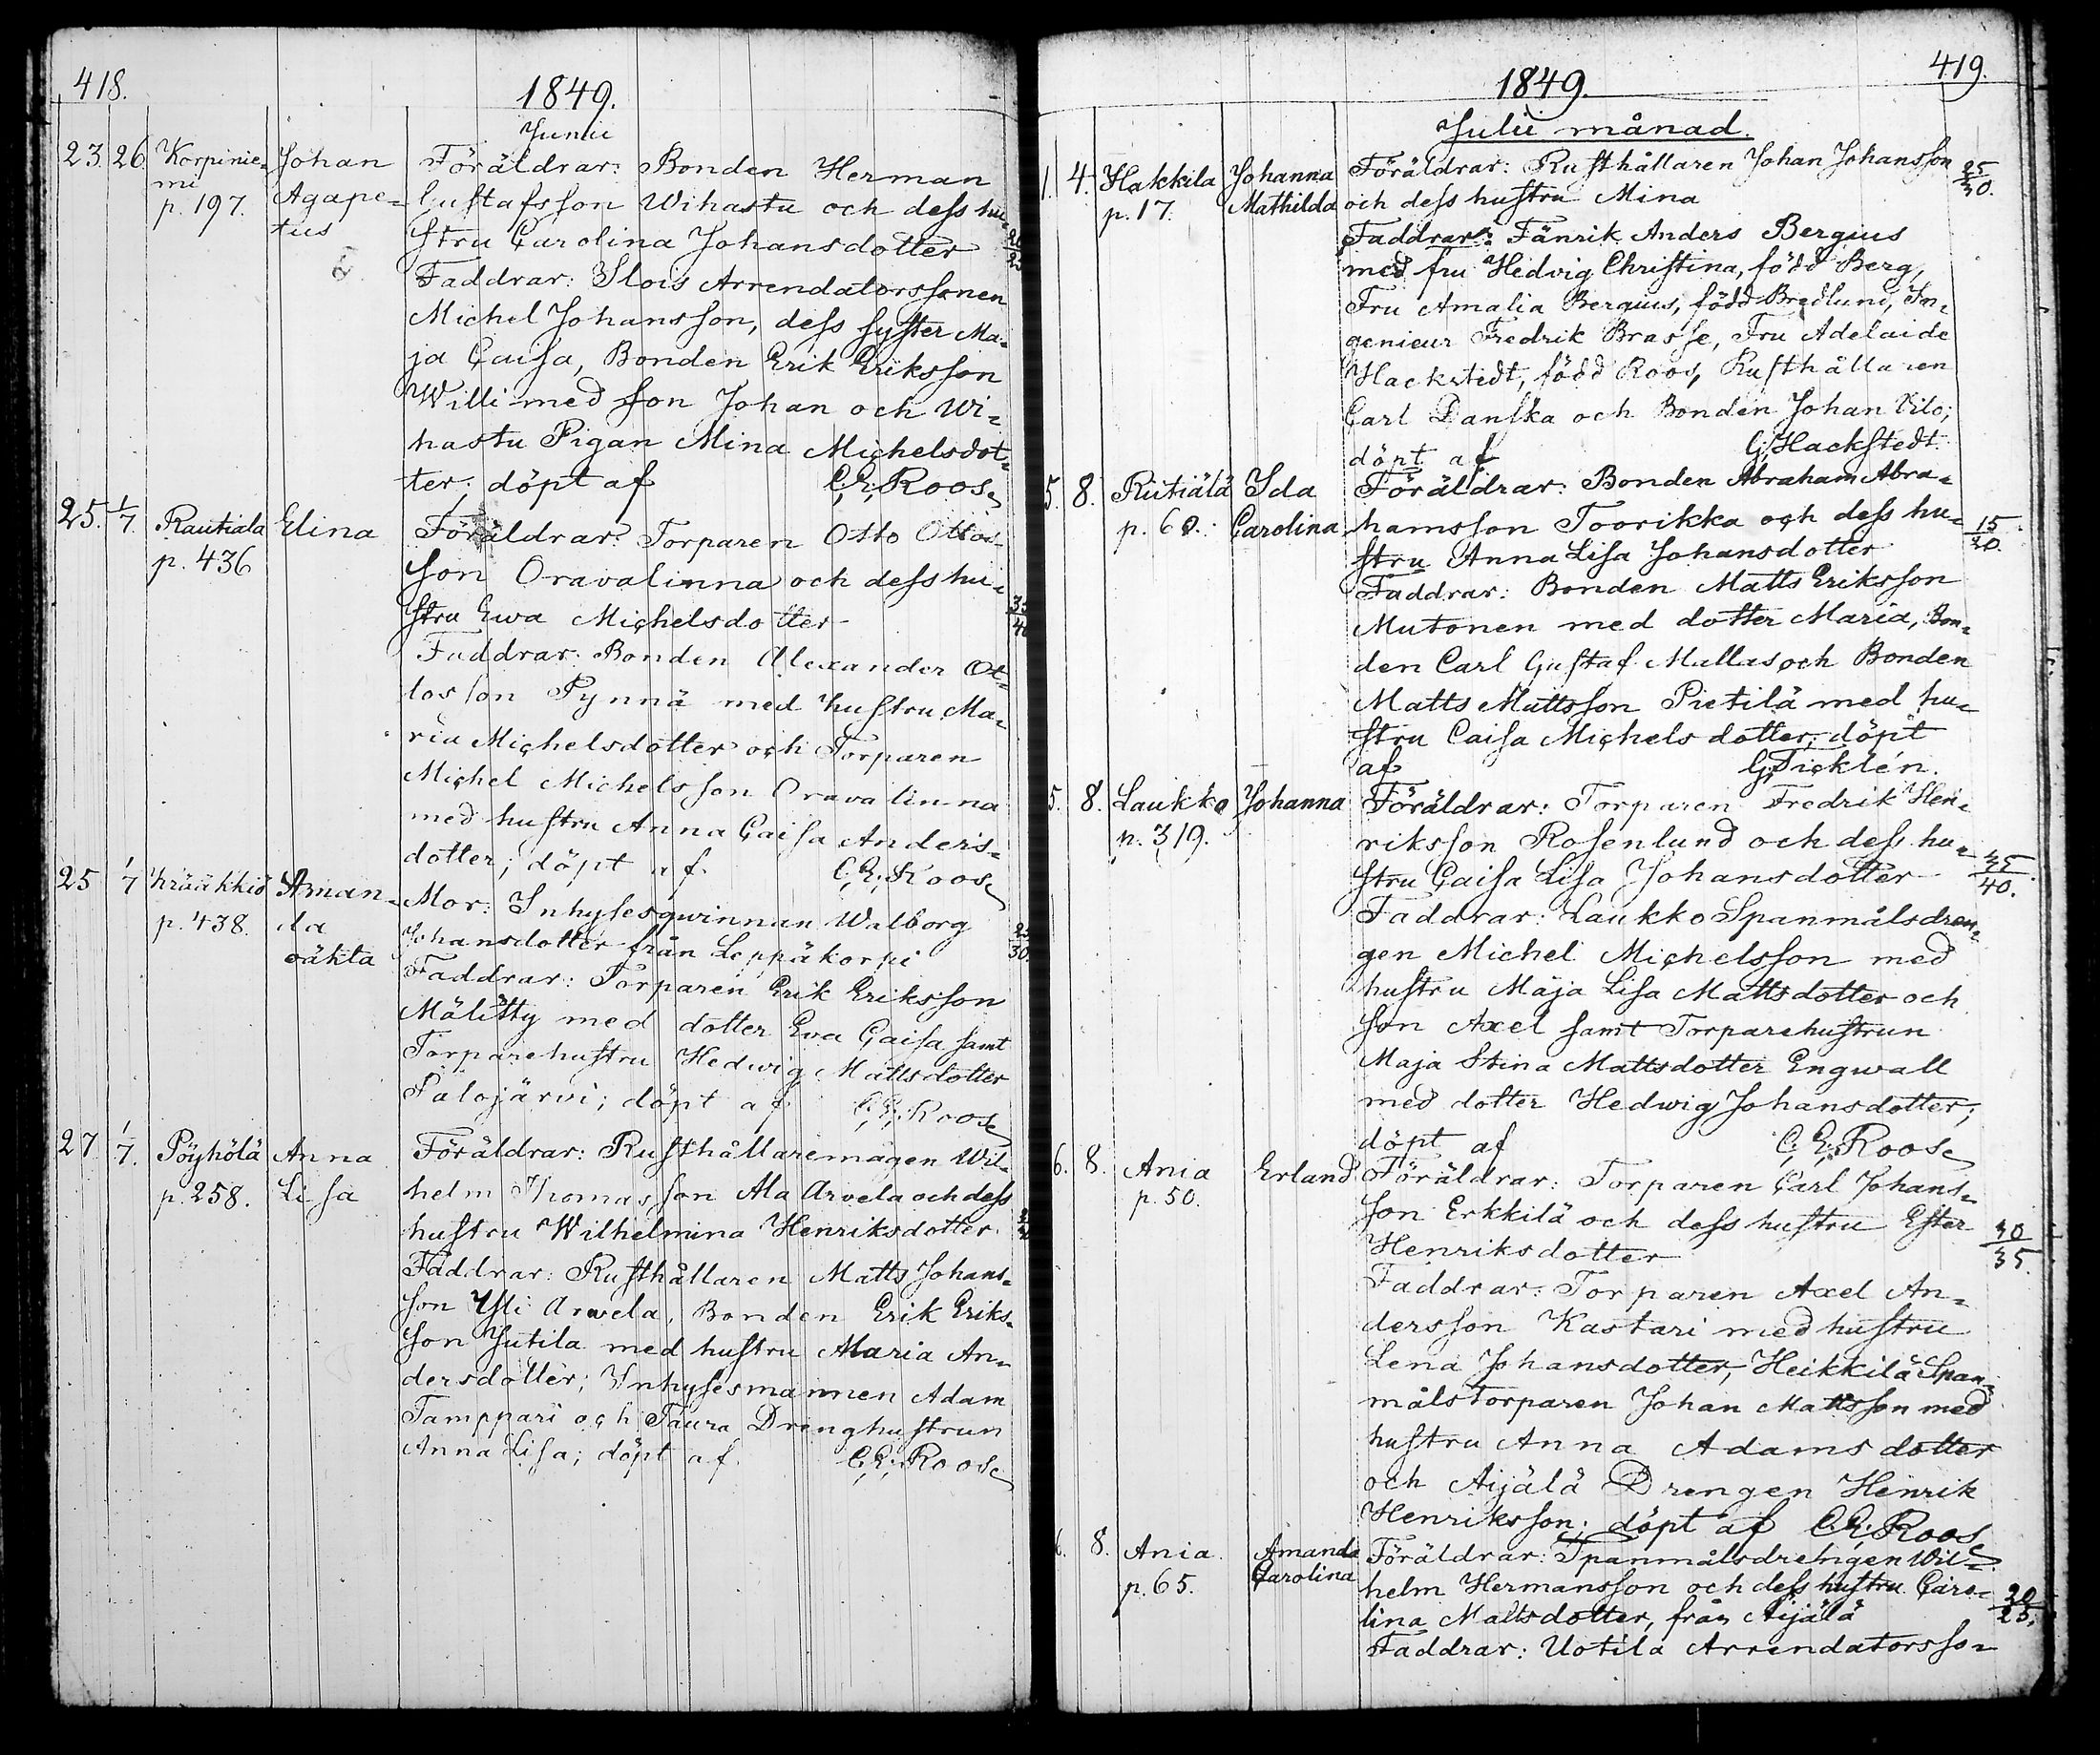 418.
1849.
Junii
23. 26. Korpinie-
mi
p. 197.
Johan
Agape-
tus
Föräldrar: Bonden Herman
Gustafsson Wihastu och dess hu-
stru Carolina Johansdotter
Faddrar: Slois Arrendatorssonen
Michel Johansson, dess syster Ma-
ja Caisa, Bonden Erik Eriksson
Willi med son Johan och Wi-
hastu Pigan Mina Michelsdot-
ter; döpt af C. E. Roos.
25. 1/7 Rautiala
p. 436
Elina
Föräldrar: Torparen Otto Ottos-
son Oravalinna och dess hu-
stru Ewa Michelsdotter
Faddrar: Bonden Alexander Ot-
tosson Pynnä med hustru Ma-
ria Michelsdotter och Torparen
Michel Michelsson Oravalinna
med hustru Anna Caisa Anders-
dotter; döpt af C. E. Roos
25 1/7 Krääkkiö
p. 438.
Aman-
da
oäkta
Mor: Inhysesqwinnan Walborg
Johansdotter från Leppäkorpi
Faddrar: Torparen Erik Eriksson
Mälitty med dotter Eva Caisa samt
Torparehustru Hedwig Mattsdotter
Palojärvi; döpt af C. E. Roos
27 1/7. Pöyhölä
p. 258.
Anna
Lisa
Föräldrar: Rusthållaremagen Wil-
helm Thomasson Ala Arvela och dess
hustru Wilhelmina Henriksdotter.
Faddrar: Rusthållaren Matts Johans-
son Yli Arwela, Bonden Erik Eriks-
son Jutila med hustru Maria An-
dersdotter; Inhysesmannen Adam
Tamppari och Taura Drenghustrun
Anna Lisa; döpt af C. E. Roos
419.
1849.
Julii månad.
1. 4. Hakkila
p. 17.
Johanna
Mathilda
Föräldrar: Rusthållaren Johan Johansson
och dess hustru Mina
25/30.
Faddrar: Fänrik Anders Bergius
med fru Hedvig Christina, född Berg,
Fru Amalia Bergius, född Bredlund, In-
genieur Fredrik Brasse, Fru Adelaide
Hackstedt, född Roos, Rusthållaren
Carl Danska och Bonden Johan Vilo;
döpt af G. Hackstedt.
5. 8. Riitiälä
p. 60.
Ida
Carolina
Föräldrar: Bonden Abraham Abra-
hamsson Toorikka och dess hu-
stru Anna Lisa Johansdotter
15/20.
Faddrar: Bonden Matts Eriksson
Mutonen med dotter Maria, Bon-
den Carl Gustaf Mallas och Bonden
Matts Mattsson Pietilä med hu-
stru Caisa Michelsdotter; döpt
af G. Ticklén.
5. 8. Laukko
p. 319.
Johanna
Föräldrar: Torparen Fredrik Hen-
riksson Rosenlund och dess hu-
stru Caisa Lisa Johansdotter
35/40.
Faddrar: Laukko Spanmålsdren-
gen Michel Michelsson med
hustru Maja Lisa Mattsdotter och
son Axel samt Torparehustrun
Maja Stina Mattsdotter Engwall
med dotter Hedwig Johansdotter;
döpt af C. E. Roos
6. 8. Ania
p. 50.
Erland
Föräldrar: Torparen Carl Johans-
son Erkkilä och dess hustru Ester
Henriksdotter
30/35.
Faddrar: Torparen Axel An-
dersson Kastari med hustru
Lena Johansdotter, Heikkilä Span-
målstorparen Johan Mattsson med
hustru Anna Adamsdotter
och Aijälä Drengen Henrik
Henriksson; döpt af C. E. Roos
6. 8. Ania
p. 65.
Amanda
Carolina
Föräldrar: Spanmålsdrengen Wil-
helm Hermansson och dess hustru Caro-
lina Mattsdotter, från Aijälä
20/25.
Faddrar: Uotila Arrendatorsso-